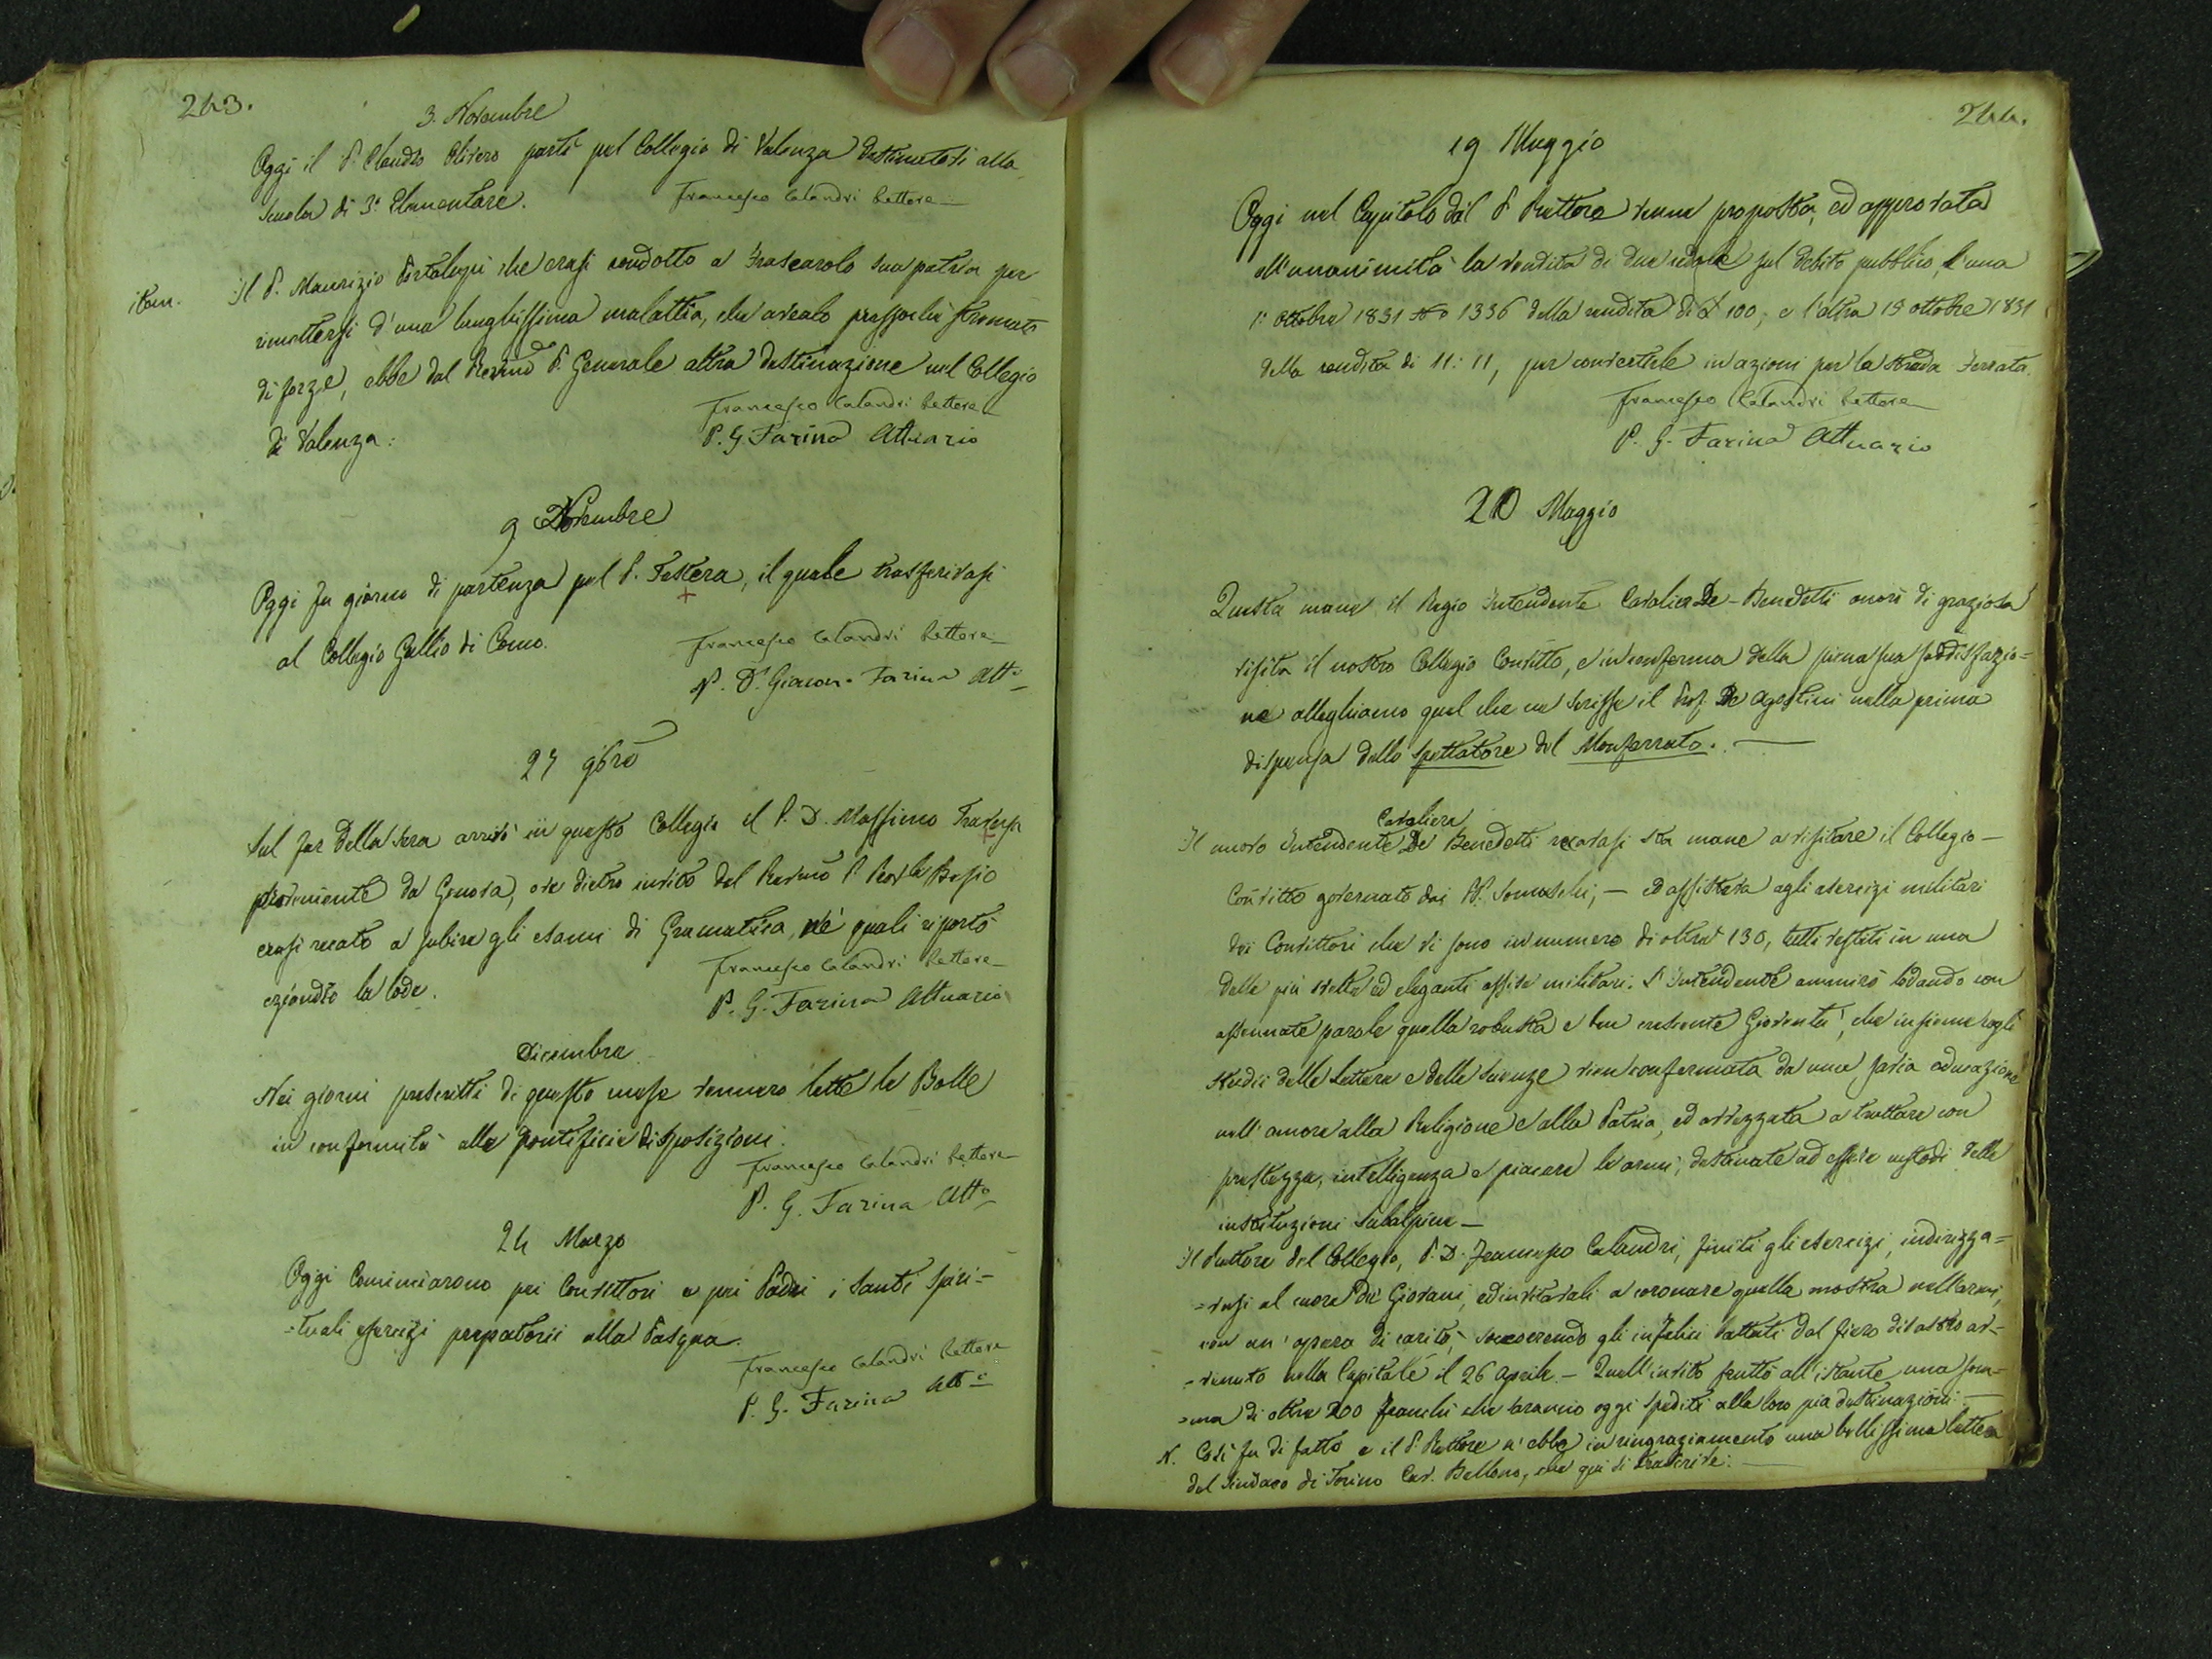 243.
3. Novembre
Oggi il P. Claudio Olivero partì pel Collegio di Valenza destinatovi alla
Scuola di 3ª Elementare.
Francesco Calandri Rettore
item. Il P. Maurizio che erasi condotto a Frascarolo sua patria per
rimettersi d'una lunghissima malattia, che avealo pressochè stremato
di forze, ebbe dal Revmo P. Generale altra destinazione nel Collegio
di Valenza:
Francesco Calandri Rettore
P. G. Farina Attuario
9 Novembre
Oggi fu giorno di partenza pel P. Testera, il quale trasferivasi
al Collegio Gallio di Como.
Francesco Calandri Rettore
P. D. Giacom. Farina Atto
27 9bre
Sul far della sera arrivò in questo Collegio il P. D. Massimo Traversa
proveniente da Genova, ove dietro invito del Revmo P. Provle Besio
erasi recato a subire gli esami di Gramatica, ne' quali riportò
eziandio la lode.
Francesco Calandri Rettore
P. G. Farina Attuario
Dicembre
Nei giorni prescritti di questo mese vennero lette le Bolle
in conformità alle pontificie disposizioni.
Francesco Calandri Rettore
P. G. Farina Atto
24 Marzo
Oggi Cominciarono pei Convittori e pei Padri i Santi Spiri=
=tuali esercizi prepatorii alla Pasqua.
Francesco Calandri Rettore
P. G. Farina Atto
244.
19 Maggio
Oggi nel Capitolo dal P. Rettore venne proposta, ed approvata
all'unanimità la vendita di due cedole sul debito pubblico, l'una
1º Ottobre 1831 No 1336 della rendita di L 100; e l'altra 15 ottobre 1831
della rendita di 11: 11, per convertirle in azioni per la strada Ferrata.
Francesco Calandri Rettore
P. G. Farina Attuario
20 Maggio
Questa mane il Regio Intendente Cavalier De-Benedetti onorò di graziosa
visita il nostro Collegio Convitto, e in conferma della piena sua soddisfazio=
ne alleghiamo quel che ne scrisse il Prof. De Agostini nella prima
dispensa dello Spettatore del Monferrato.
Cavaliere
Il nuovo Intendente De Benedetti recavasi sta mane a visitare il Collegio -
Convitto governato dai PP. Somaschi; - ed assisteva agli esercizi militari
dei Convittori che vi sono in numero di oltre 130, tutti vestiti in una
delle più svelte ed eleganti assise militari. L'Intendente ammirò lodando con
assennate parole quella robusta e ben crescente Gioventù, che insieme cogli
studii delle Lettere e delle Scienze vien confermata da una savia educazione
nell'amore alla Religione e alla Patria, ed avvezzata a trattare con
prestezza, intelligenza e piacere le armi, destinate ad essere custodi delle
instituzioni Subalpine -
Il Rettore del Collegio, P. D. Francesco Calandri, finiti gli esercizi, indirizza=
=vasi al cuore de' Giovani, ed invitavali a coronare quella mostra nell'armi,
con un'opera di carità, soccorrendo gli infelici dal fiero disastro av=
=venuto nella Capitale il 26 Aprile. - Quell'invito fruttò all'istante una som=
=ma di oltre 200 franchi che saranno oggi spediti alla loro pia destinazione. -
N. Così fu di fatto e il P. Rettore n'ebbe in ringraziamento una bellissima lettera
del Sindaco di Torino Cav. Bellono, che qui si trascrive: -